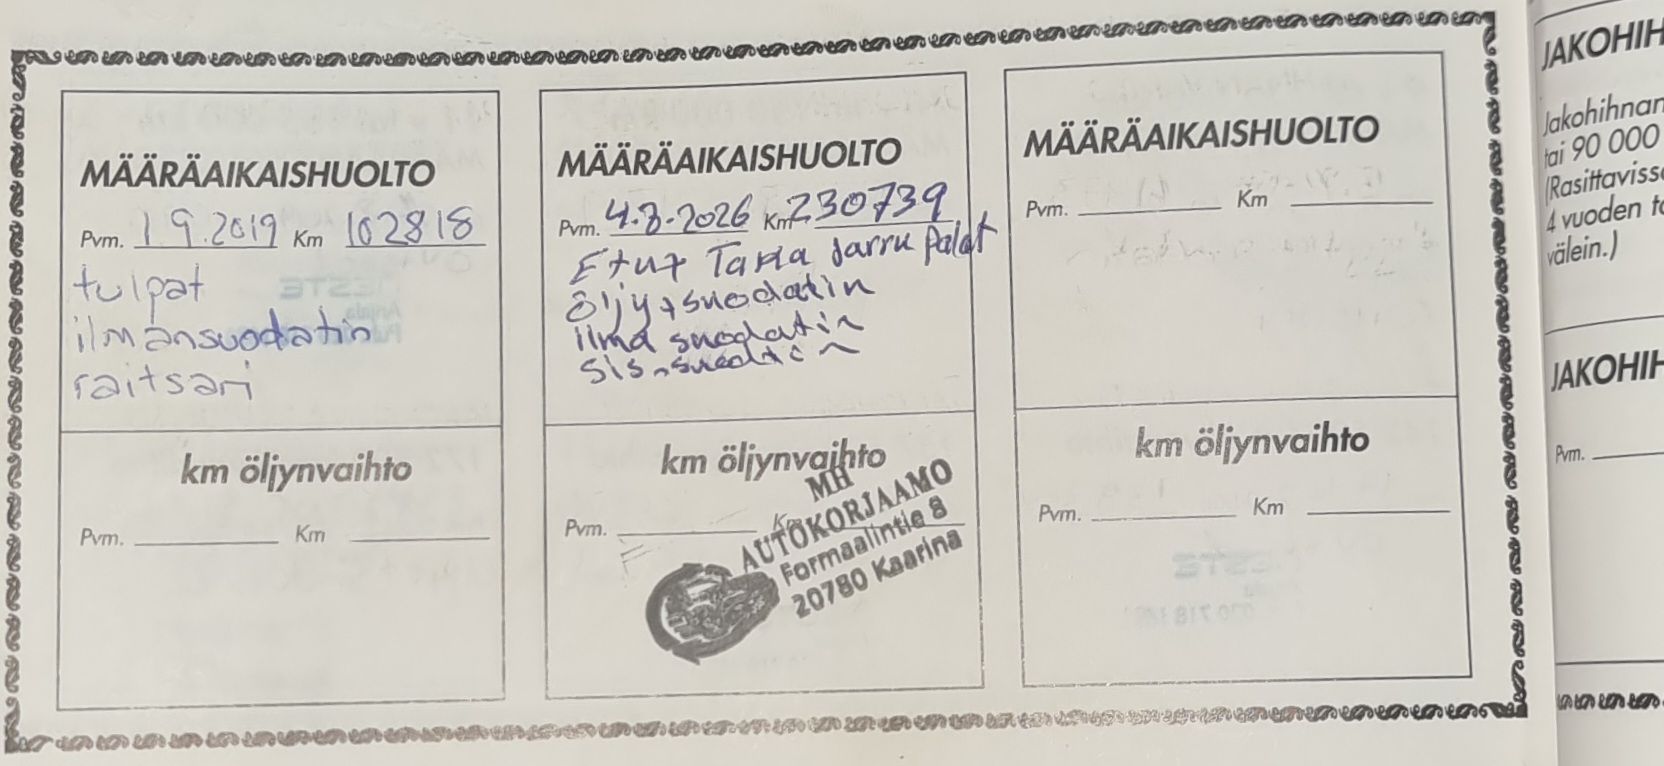 MÄÄRÄAIKAISHUOLTO
Pvm. 1 9.2019 Km 102818
tulpat
ilmansuodatin
raitsari
km öljynvaihto
Pvm. Km
MÄÄRÄAIKAISHUOLTO
Pvm. 4.3.2026 Km 230739
Etu+ Taka Jarru Palat
öljy+suodatin
ilma suodatin
sis.suodatin
km öljynvaihto
Pvm. Km
MH
AUTOKORJAAMO
Formaalintie 8
20780 Kaarina
MÄÄRÄAIKAISHUOLTO
Pvm. Km
km öljynvaihto
Pvm. Km
JAKOHIH
Jakohihnan
tai 90 000
(Rasittaviss
4 vuoden t
välein.)
JAKOHIH
Pvm.